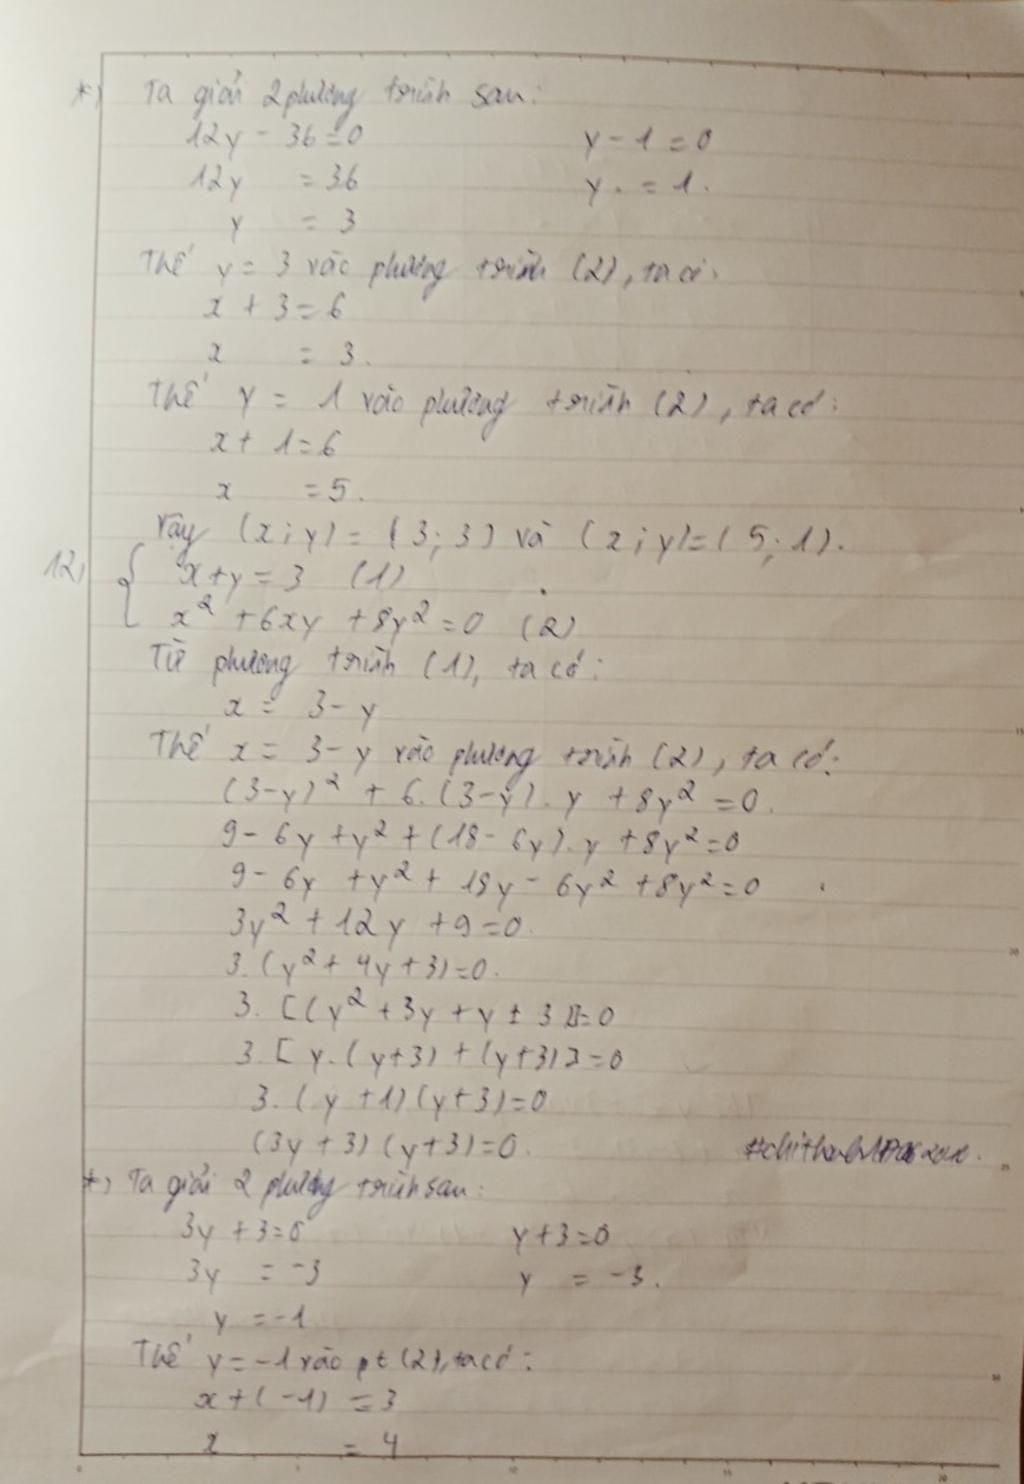 *) Ta giải 2 phương trình sau:
12y - 36 = 0 y - 1 = 0
12y = 36 y = 1.
y = 3
Thế y = 3 vào phương trình (2), ta có:
x + 3 = 6
x = 3.
Thế y = 1 vào phương trình (2), ta có:
x + 1 = 6
x = 5.
Vậy (x; y) = (3; 3) và (x; y) = (5; 1).
12) { x + y = 3 (1)
x² + 6xy + 8y² = 0 (2)
Từ phương trình (1), ta có:
x = 3 - y
Thế x = 3 - y vào phương trình (2), ta có:
(3 - y)² + 6.(3 - y).y + 8y² = 0.
9 - 6y + y² + (18 - 6y).y + 8y² = 0
9 - 6y + y² + 18y - 6y² + 8y² = 0
3y² + 12y + 9 = 0.
3.(y² + 4y + 3) = 0.
3. [(y² + 3y + y + 3)] = 0
3. [y.(y + 3) + (y + 3)] = 0
3.(y + 1)(y + 3) = 0
(3y + 3)(y + 3) = 0.
*) Ta giải 2 phương trình sau:
3y + 3 = 0 y + 3 = 0
3y = -3 y = -3.
y = -1
Thế y = -1 vào pt (2), ta có:
x + (-1) = 3
x = 4